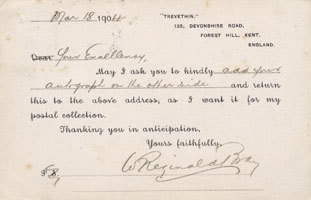 Mar 18 1904
"TREVETHIN,"
135, DEVONSHIRE ROAD,
FOREST HILL, KENT,
ENGLAND.
Dear Your Excellency,
May I ask you to kindly add your
autograph on the other side and return
this to the above address, as I want it for my
postal collection.
Thanking you in anticipation,
Yours faithfully,
W Reginald Bray